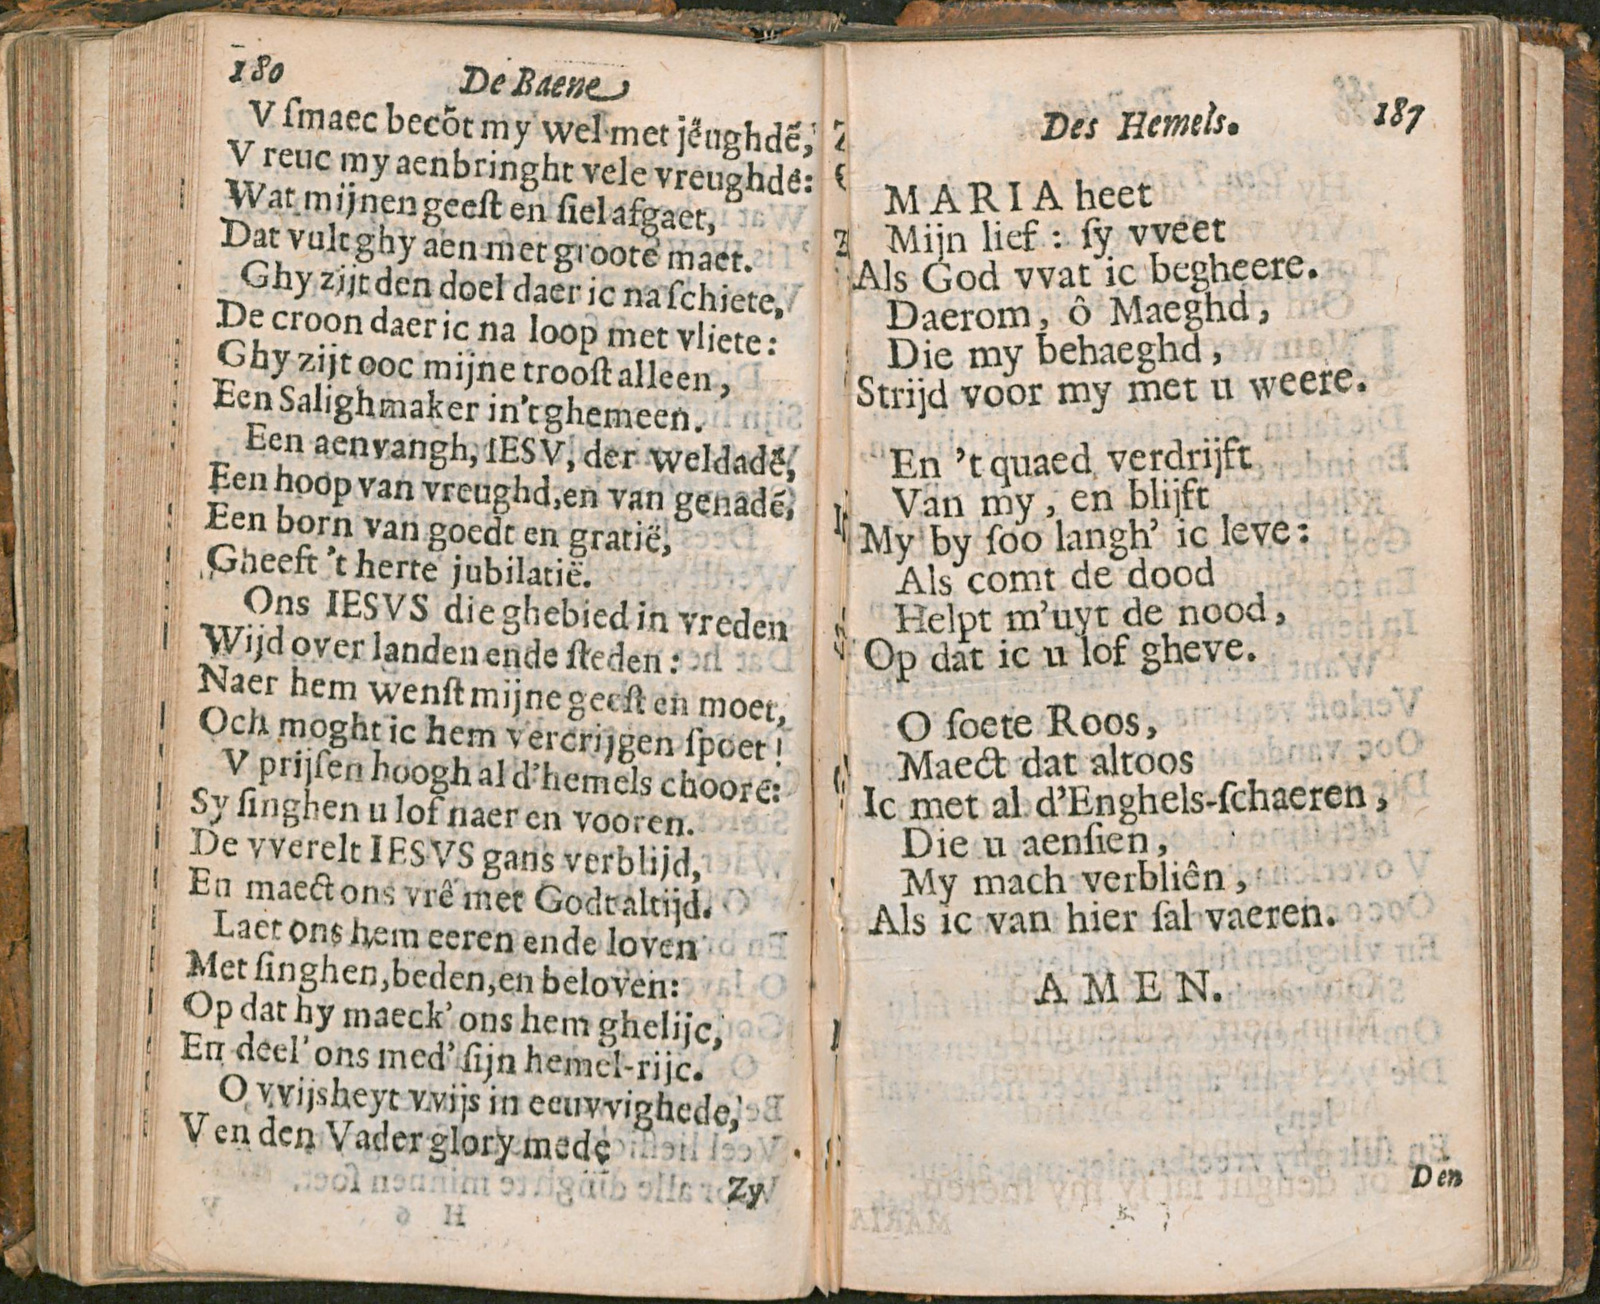 180
De Baene
V ſmaec becõt my wel met jëughdẽ,
V reuc my aenbringht vele vreughdẽ:
Wat mijnen geeſt en ſiel afgaet,
Dat vult ghy aen met groote maet.
Ghy zijt den doel daer ic na ſchiete,
De croon daer ic na loop met vliete:
Ghy zijt ooc mijne trooſt alleen,
Een Salighmaker in't ghemeen.
Een aenvangh, IESV, der weldadẽ,
Een hoop van vreughd, en van genadẽ,
Een born van goedt en gratië,
Gheeft 't herte jubilatië.
Ons IESVS die ghebied in vreden
Wijd over landen ende ſteden:
Naer hem wenſt mijne geeſt en moet,
Och moght ic hem vercrijgen ſpoet!
V prijſen hoogh al d'hemels choorẽ:
Sy ſinghen u lof naer en vooren.
De vverelt IESVS gans verblijd,
En maect ons vrê met Godt altijd.
Laet ons hem eeren ende loven
Met ſinghen, beden, en beloven:
Op dat hy maeck' ons hem ghelijc,
En deel' ons med' ſijn hemel-rijc.
O vvijsheyt vvijs in eeuvvighede,
V en den Vader glory mede
Zy
Des Hemels.
187
MARIA heet
Mijn lief: ſy vveet
Als God vvat ic begheere.
Daerom, ô Maeghd,
Die my behaeghd,
Strijd voor my met u weere.
En 't quaed verdrijft
Van my, en blijft
My by ſoo langh' ic leve:
Als comt de dood
Helpt m'uyt de nood,
Op dat ic u lof gheve.
O ſoete Roos,
Maect dat altoos
Ic met al d'Enghels-ſchaeren,
Die u aenſien,
My mach verbliên,
Als ic van hier ſal vaeren.
AMEN.
Den